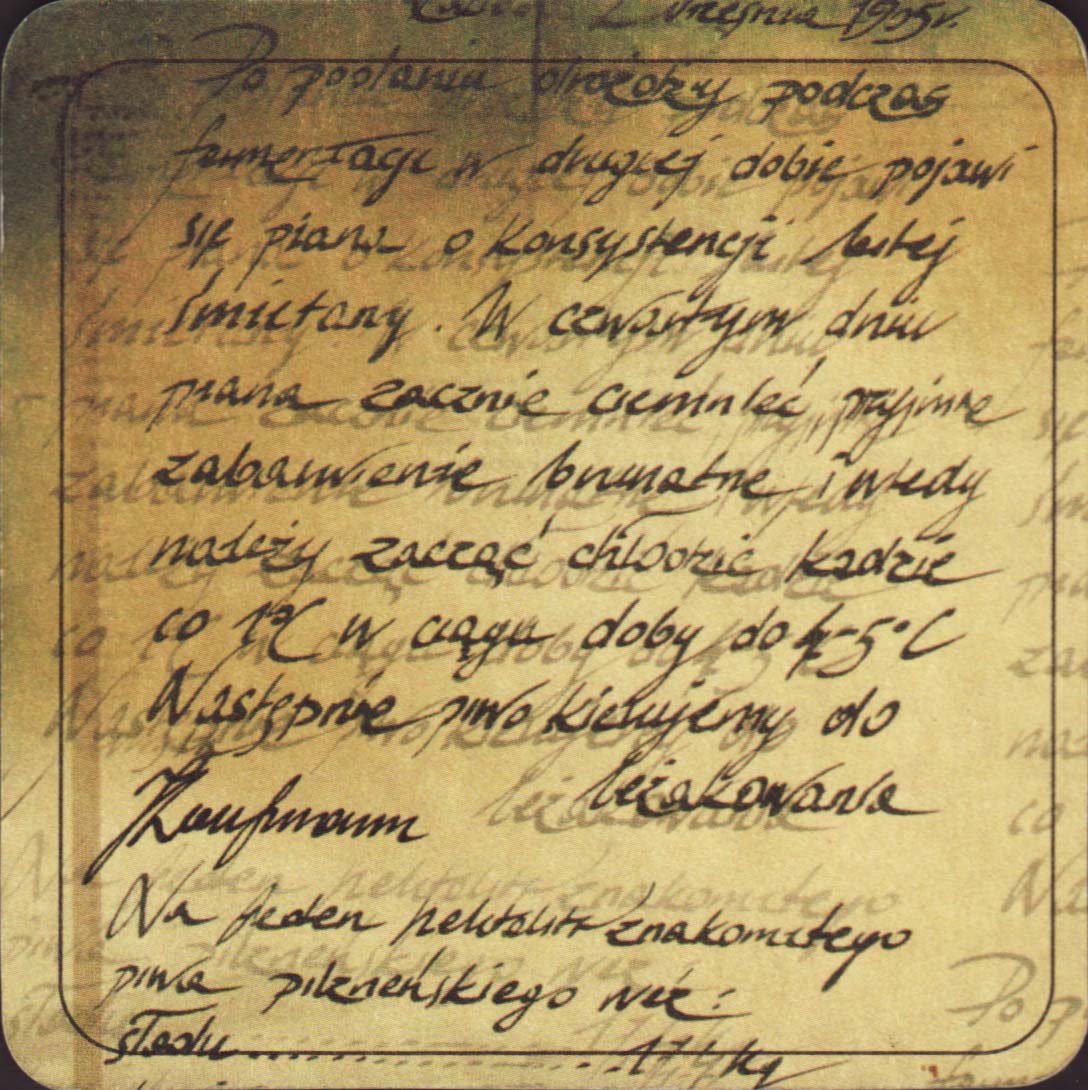 2 września 1905r.
Po podaniu drożdży podczas
fermentacji w drugiej dobie pojawi
się piana o konsystencji bitej
śmietany. W czwartym dniu
piana zacznie ciemnieć, przyjmie
zabarwienie brunatne i wtedy
należy zacząć chłodzić kadzie
co 1°C w ciągu doby do 4-5°C
Następnie piwo kierujemy do
leżakowania
Kaufmann
Na jeden hektolitr znakomitego
piwa pilzneńskiego weź:
słodu.......................17,4 kg